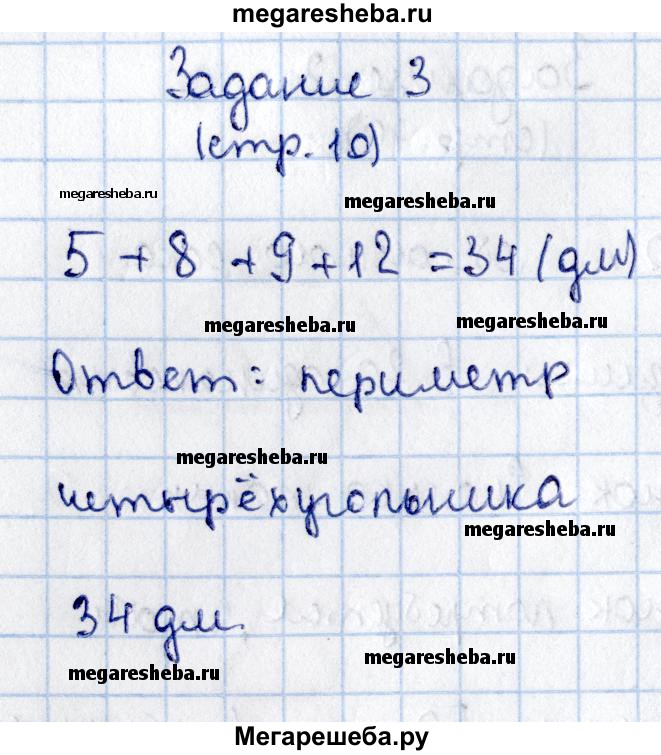 megaresheba.ru
Задание 3
(стр. 10)
megaresheba.ru
megaresheba.ru
5 + 8 + 9 + 12 = 34 (дм)
megaresheba.ru
megaresheba.ru
Ответ: периметр
megaresheba.ru
четырёхугольника
megaresheba.ru
34 дм.
megaresheba.ru
megaresheba.ru
Мегарешеба.ру